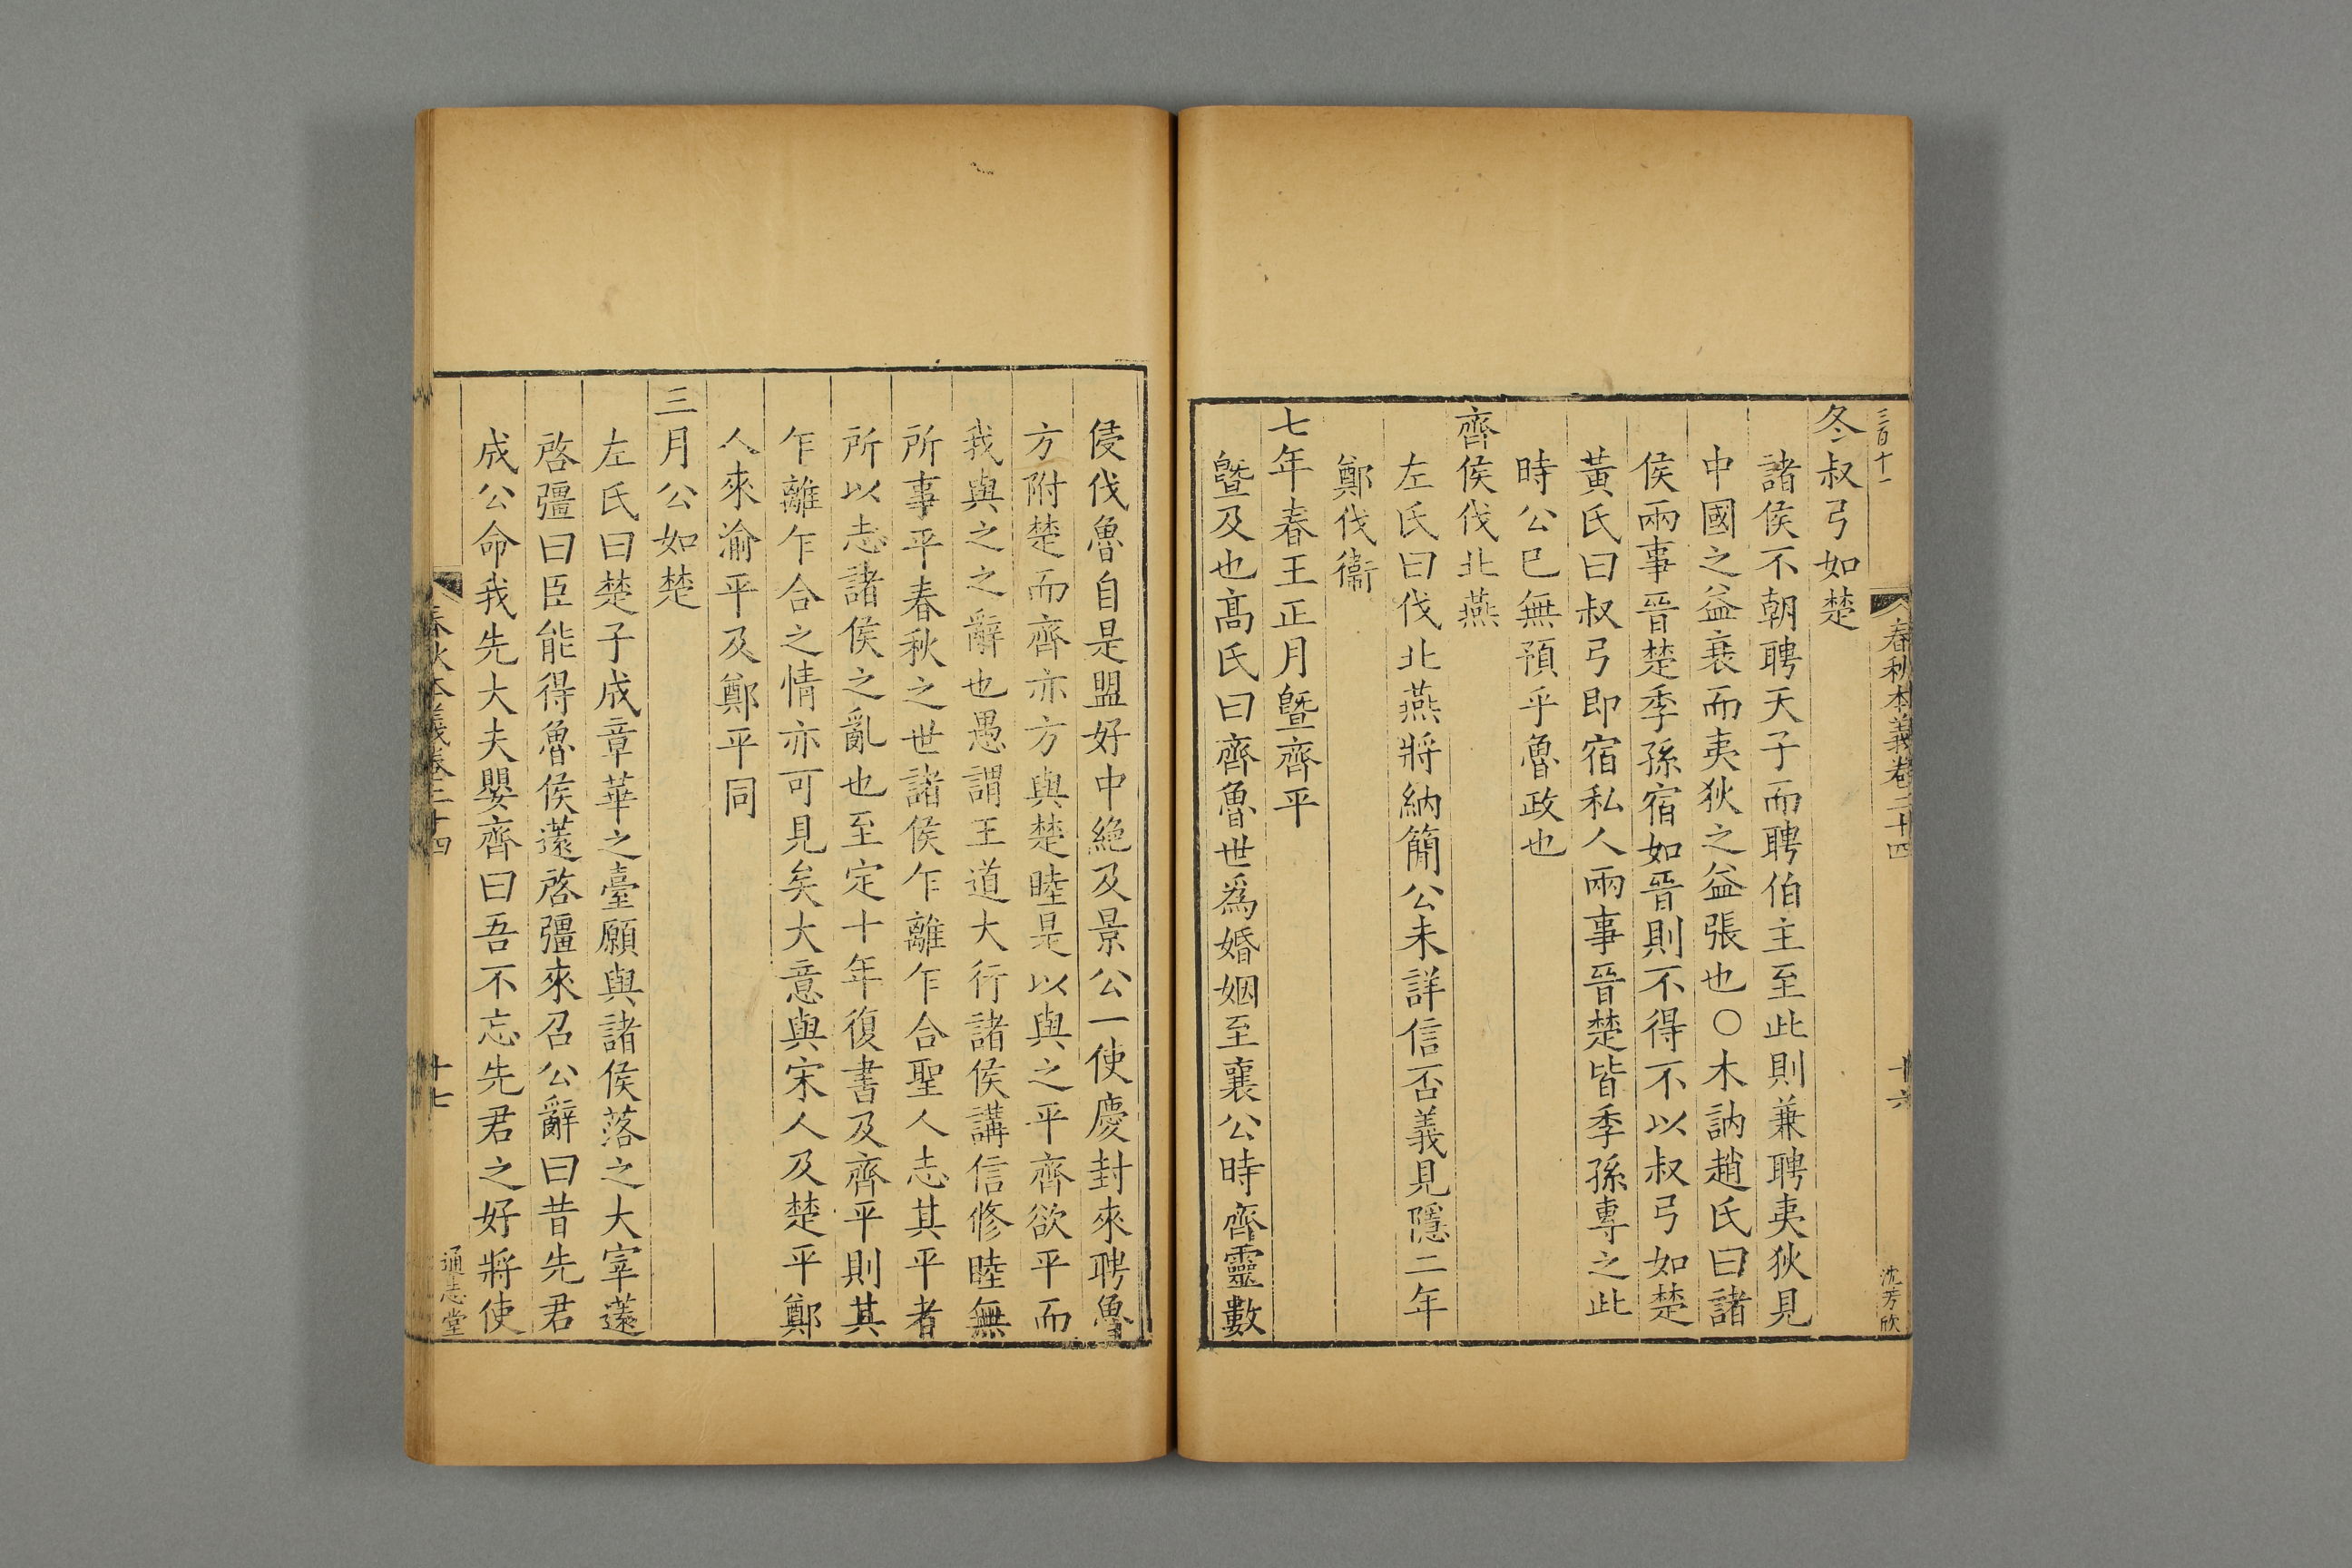 三百十一
春秋本義卷二十四
十六
沈芳欣
冬叔弓如楚
諸侯不朝聘天子而聘伯主至此則兼聘夷狄見
中國之益衰而夷狄之益張也○木訥趙氏曰諸
侯兩事晉楚季孫宿如晉則不得不以叔弓如楚
黃氏曰叔弓即宿私人兩事晉楚皆季孫專之此
時公已無預乎魯政也
齊侯伐北燕
左氏曰伐北燕將納簡公未詳信否義見隱二年
鄭伐衞
七年春王正月曁齊平
曁及也髙氏曰齊魯世爲婚姻至襄公時齊靈數
侵伐魯自是盟好中絶及景公一使慶封來聘魯
方附楚而齊亦方與楚睦是以與之平齊欲平而
我與之之辭也愚謂王道大行諸侯講信修睦無
所事平春秋之世諸侯乍離乍合聖人志其平者
所以志諸侯之亂也至定十年復書及齊平則其
乍離乍合之情亦可見矣大意與宋人及楚平鄭
人來渝平及鄭平同
三月公如楚
左氏曰楚子成章華之臺願與諸侯落之大宰薳
啓彊曰臣能得魯侯薳啓彊來召公辭曰昔先君
成公命我先大夫嬰齊曰吾不忘先君之好將使
春秋本義卷二十四
十七
通志堂